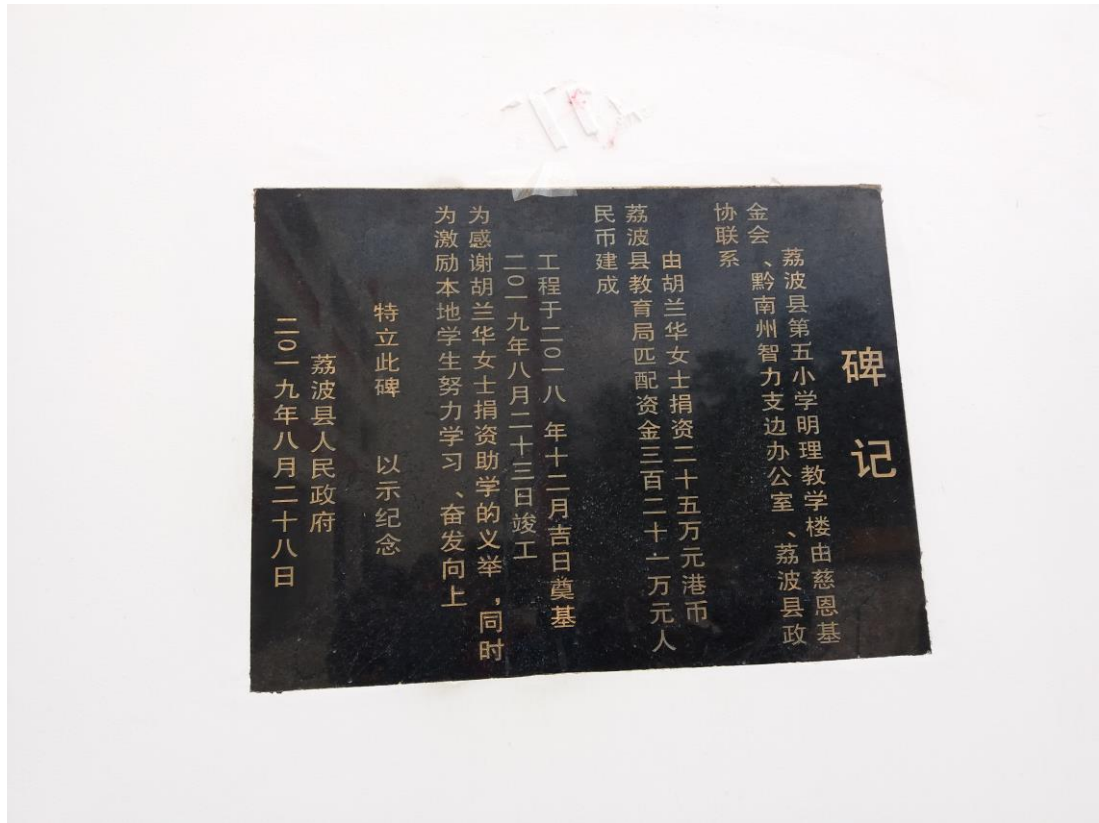 碑记
荔波县第五小学明理教学楼由慈恩基
金会、黔南州智力支边办公室、荔波县政
协联系
由胡兰华女士捐资二十五万元港币
荔波县教育局匹配资金三百二十一万元人
民币建成
工程于二〇一八 年十二月吉日奠基
二〇一九年八月二十三日竣工
为感谢胡兰华女士捐资助学的义举,同时
为激励本地学生努力学习、奋发向上
特立此碑 以示纪念
荔波县人民政府
二〇一九年八月二十八日